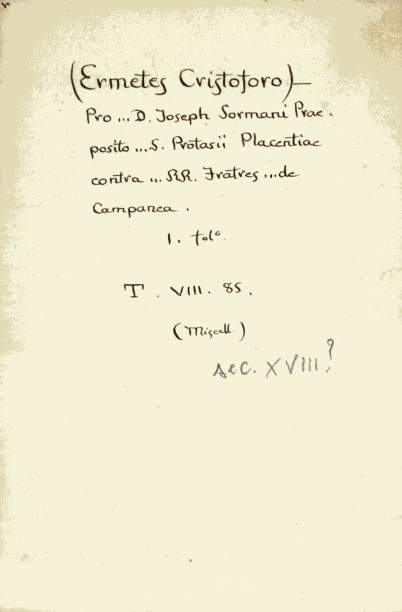 (Ermetes Cristoforo)—
Pro ... D. Joseph Sormani Prae.
posito ... S. Protasii Placentiae
contra ... RR. Fratres ... de
Campanea.
1. folo.
T. VIII. 85.
(Miscell.)
sec. XVIII?